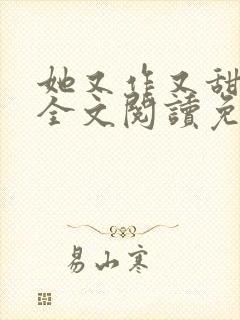 她又作又甜
全文閱讀免
易山寒